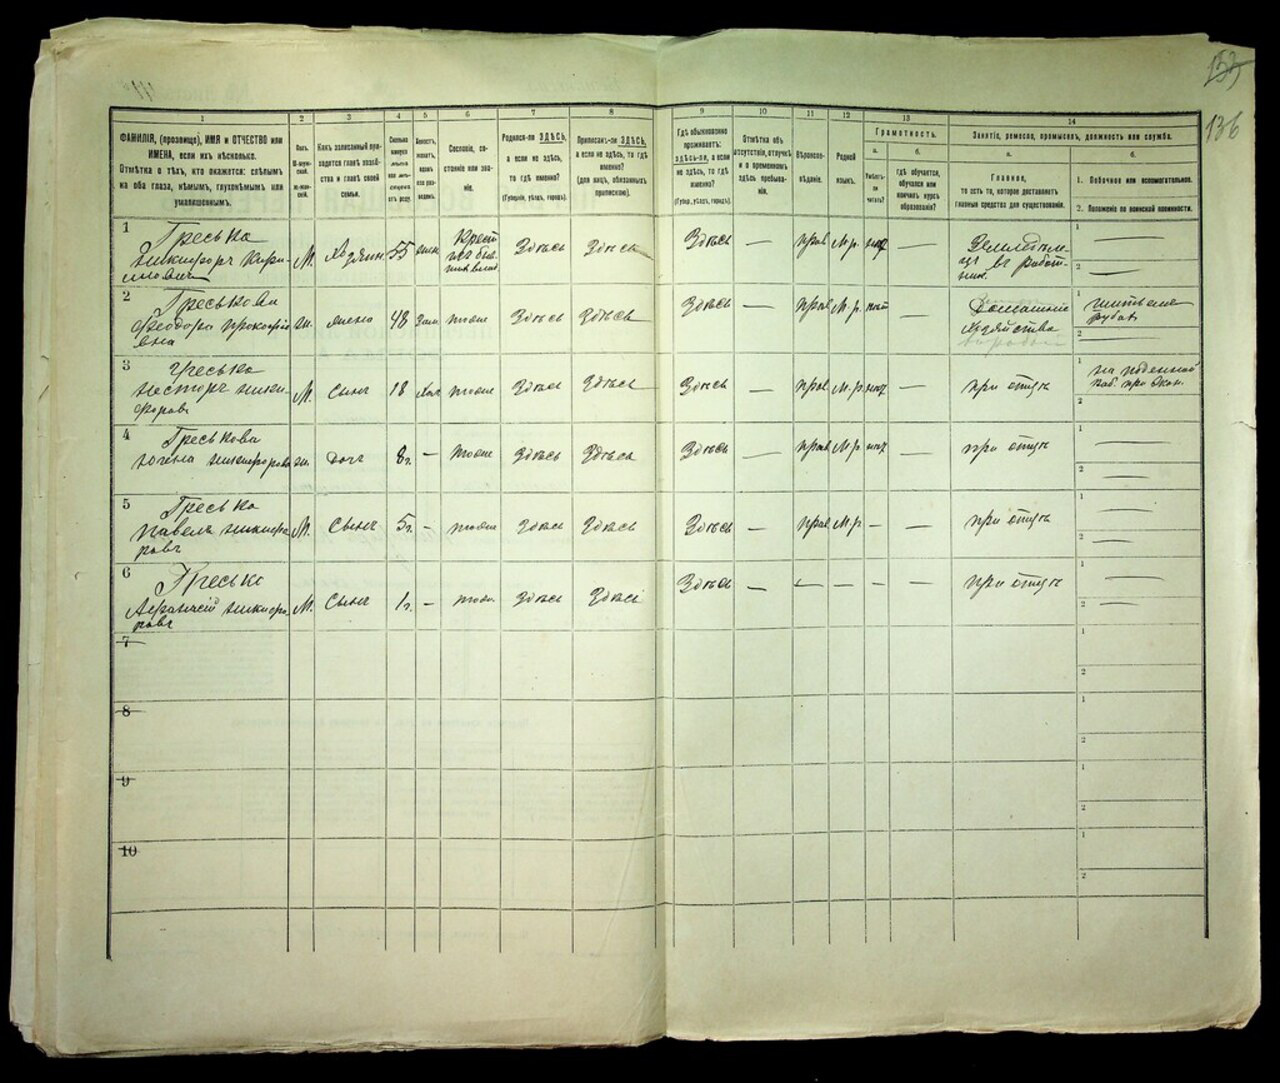 133
136
1
2
3
4
5
6
7
8
9
10
11
12
13
14
ФАМИЛІЯ, (прозвище), ИМЯ и ОТЧЕСТВО или
ИМЕНА, если ихъ нѣсколько.
Отмѣтка о тѣхъ, кто окажется: слѣпымъ
на оба глаза, нѣмымъ, глухонѣмымъ или
умалишеннымъ.
Какъ записанный при-
ходится главѣ хозяй-
ства и главѣ своей
семьи.
Сословіе, со-
стояніе или зва-
ніе.
Родился-ли ЗДѢСЬ,
а если не здѣсь,
то гдѣ именно?
(Губернія, уѣздъ, городъ).
Приписанъ-ли ЗДѢСЬ,
а если не здѣсь, то гдѣ
именно?
(для лицъ, обязанныхъ
припискою).
Гдѣ обыкновенно
проживаетъ:
здѣсь-ли, а если
не здѣсь, то гдѣ
именно?
(Губер., уѣздъ, городъ).
Отмѣтка объ
отсутствіи, отлучкѣ
и о временномъ
здѣсь пребыва-
ніи.
Вѣроиспо-
вѣданіе.
Родной
языкъ.
Грамотность.
а.
б.
Гдѣ обучается,
обучался или
кончилъ курсъ
образованія?
Занятіе, ремесло, промыселъ, должность или служба.
а.
Главное,
то есть то, которое доставляетъ
главныя средства для существованія.
б.
1. Побочное или вспомогательное.
2. Положеніе по воинской повинности.
1
Гресько
Никифоръ Кири-
ловичъ
М. Хозяинъ 55
Крест
Здѣсь Здѣсь Здѣсь — прав М.р. нѣт —
Земледѣле-
1 —
2 —
2
Греськова
Феодора Прокофіе
вна
ж. жена 48 Зам. тоже Здѣсь Здѣсь Здѣсь — прав М.р. нѣт —
Домашніе
хозяйства
1
2 —
3
Гресько
Несторъ Ники-
форовъ
М. Сынъ 18 Хол тоже Здѣсь Здѣсь Здѣсь — прав М.р. нѣт —
при отцѣ
1 на поденной
2
4
Греськова
Никифорова
ж. дочь 8г. — тоже Здѣсь Здѣсь Здѣсь — прав М.р. нѣт —
при отцѣ
1 —
2 —
5
Гресько
Павелъ Никифо
ровъ
М. Сынъ 5г. — тоже Здѣсь Здѣсь Здѣсь — прав М.р. — —
при отцѣ
1 —
2 —
6
Гресько
Афанасій Никифо
ровъ
М. Сынъ 1г. — тоже Здѣсь Здѣсь Здѣсь — — — — —
при отцѣ
1 —
2 —
7
1
2
8
1
2
9
1
2
10
1
2